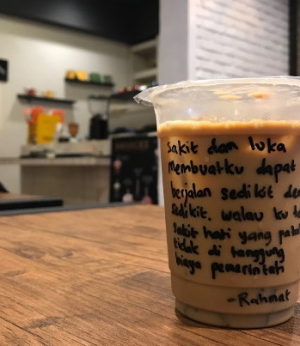 sakit dan luka
membuatku dapat
berjalan sedikit de
sedikit, walau ku
sakit hati yang
tidak di tanggung
biaya pemerintah
-Rahmat